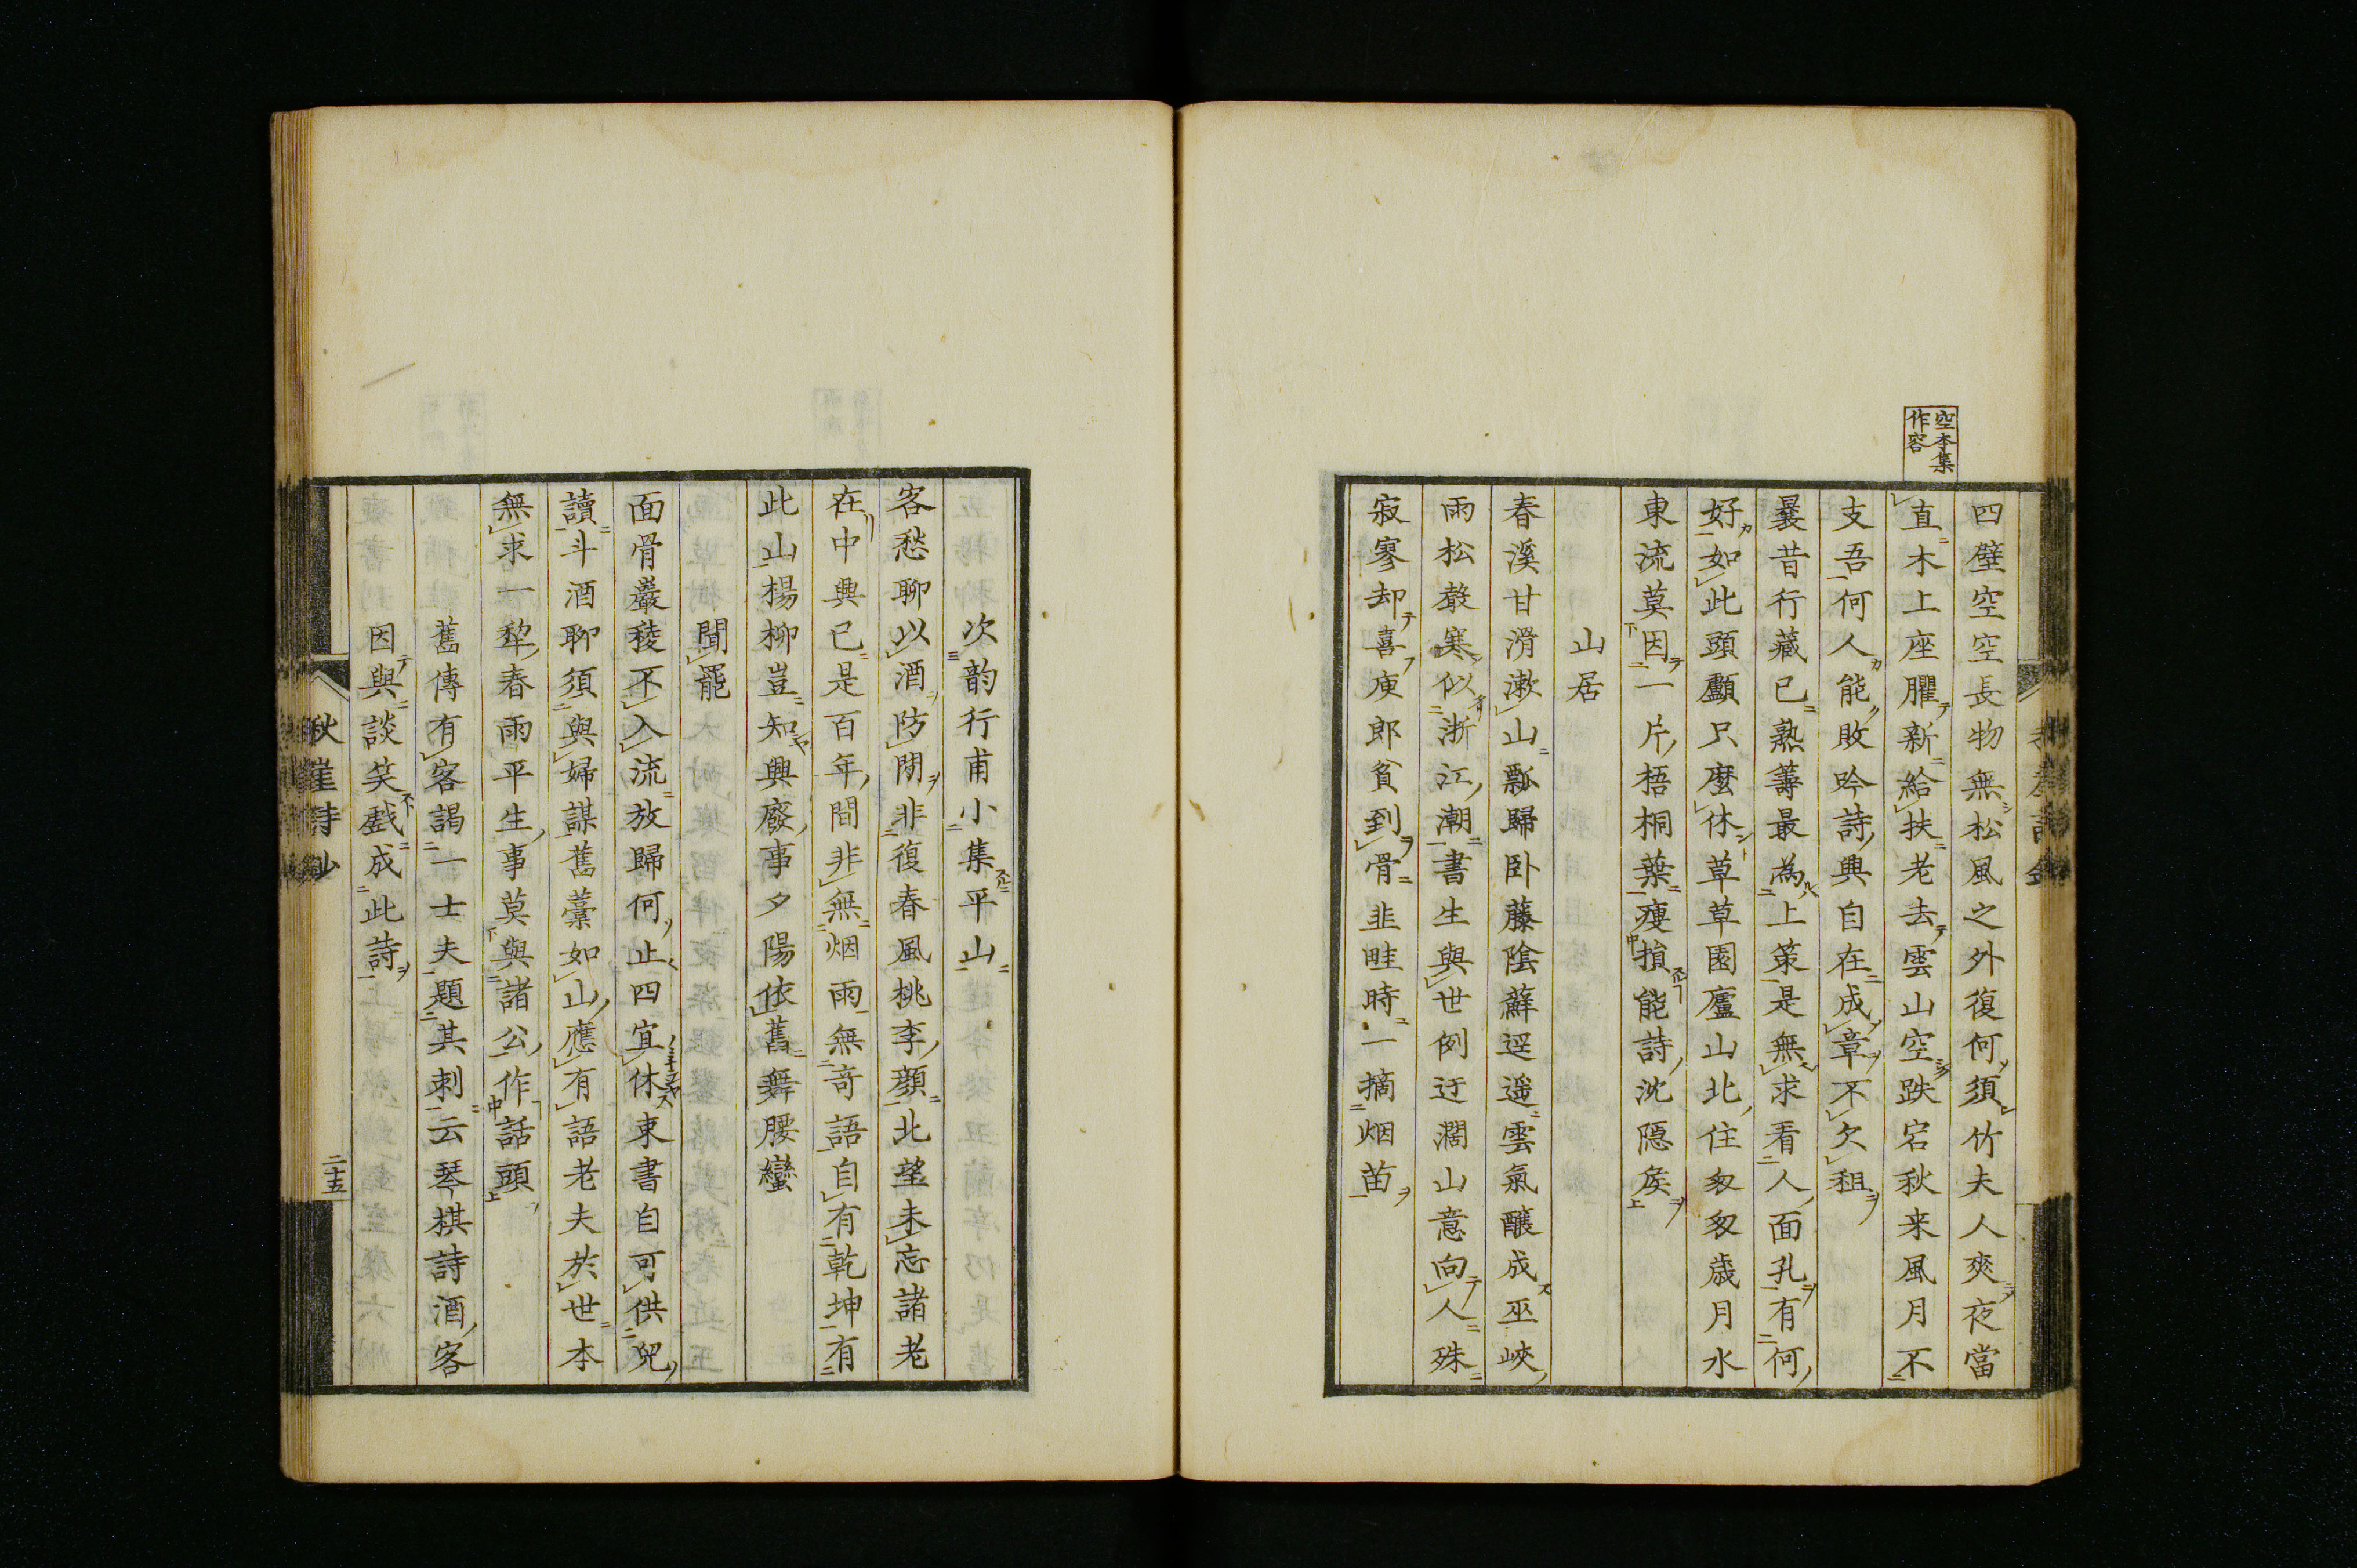 空本集
作容
四壁空空長物無松風之外復何須竹夫人爽夜當
直木上座臞新給扶老去雲山空跌宕秋来風月不
支吾何人能敗吟詩興自在成章不欠租
曩昔行藏已熟籌最為上策是無求看人面孔有何
好如此頭顱只麼休草草園廬山北住匆匆歲月水
東流莫因一片梧桐葉瘦損能詩沈隱侯
山居
春溪甘滑漱山瓢歸卧藤陰蘚逕遥雲氣釀成巫峽
雨松聲寒似浙江潮書生與世例迂濶山意向人殊
寂寥却喜庾郎貧到骨韭畦時一摘烟苗
次韵行甫小集平山
客愁聊以酒防閑非復春風桃李顔北望未忘諸老
在中興已是百年間非無烟雨無奇語自有乾坤有
此山楊柳豈知興廢事夕陽依舊舞腰蠻
聞罷
面骨巖稜不入流放歸何止四宜休束書自可供兒
讀斗酒聊須與婦謀舊藁如山應有語老夫於世本
無求一犂春雨平生事莫與諸公作話頭
舊傳有客謁一士夫題其刺云琴棋詩酒客
因與談笑戲成此詩
秋崖詩鈔
二十五